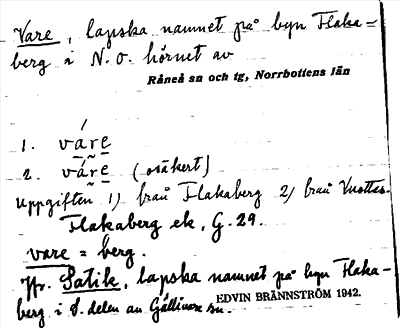 Vare, lapska namnet på byn Flaka-
berg i N.O. hörnet av
Råneå sn och tg, Norrbottens län
1. váre
2. váre (osäkert)
Uppgiften 1) från Flakaberg 2) från Vuottas.
Flakaberg ek, G. 29.
vare = berg.
Jfr. Satik, lapska namnet på byn Flaka-
berg i S. delen av Gällivare sn.
EDVIN BRÄNNSTRÖM 1942.